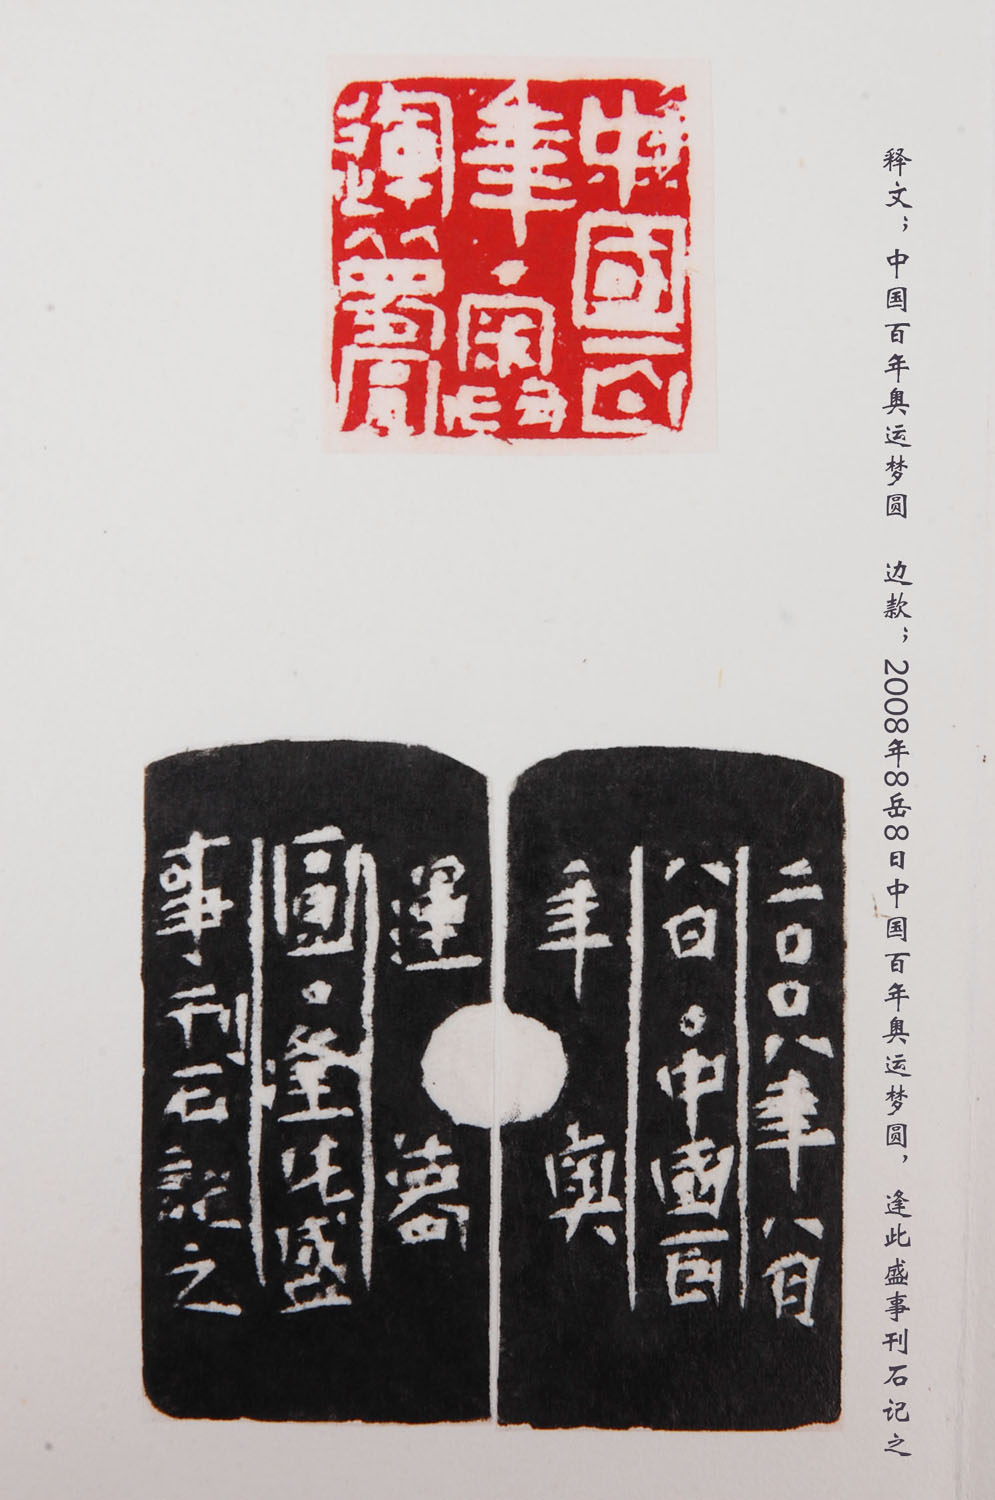 释文；中国百年奥运梦圆 边款；2008年8岳8日中国百年奥运梦圆，逢此盛事刊石记之
中國百
年·奥
運夢圓
二〇〇八年八月
八日。中國百
年奥
運夢
圓。逢此盛
事刊石記之